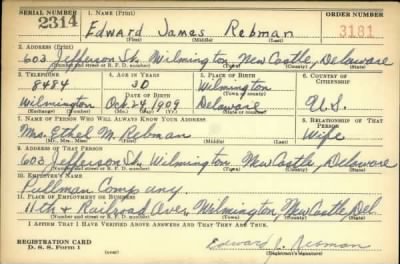 SERIAL NUMBER 1. NAME (Print) ORDER NUMBER
2314 Edward James Rebman 3181
(First) (Middle) (Last)
2. ADDRESS (Print)
603 Jefferson St. Wilmington, New Castle, Delaware
(Number and street or R. F. D. number) (Town) (County) (State)
3. TELEPHONE 4. AGE IN YEARS 5. PLACE OF BIRTH 6. COUNTRY OF CITIZENSHIP
8484 30 Wilmington
DATE OF BIRTH (Town or county)
Wilmington Oct. 24, 1909 Delaware U.S.
(Exchange) (Number) (Mo.) (Day) (Yr.) (State or country)
7. NAME OF PERSON WHO WILL ALWAYS KNOW YOUR ADDRESS 8. RELATIONSHIP OF THAT PERSON
Mrs. Ethel M. Rebman Wife
(Mr., Mrs., Miss) (First) (Middle) (Last)
9. ADDRESS OF THAT PERSON
603 Jefferson St. Wilmington, New Castle, Delaware
(Number and street or R. F. D. number) (Town) (County) (State)
10. EMPLOYER'S NAME
Pullman Company.
11. PLACE OF EMPLOYMENT OR BUSINESS
11th & Railroad Ave., Wilmington, New Castle, Del.
(Number and street or R. F. D. number) (Town) (County) (State)
I AFFIRM THAT I HAVE VERIFIED ABOVE ANSWERS AND THAT THEY ARE TRUE.
REGISTRATION CARD
D. S. S. Form 1 Edward J. Rebman
(over) (Registrant's signature)